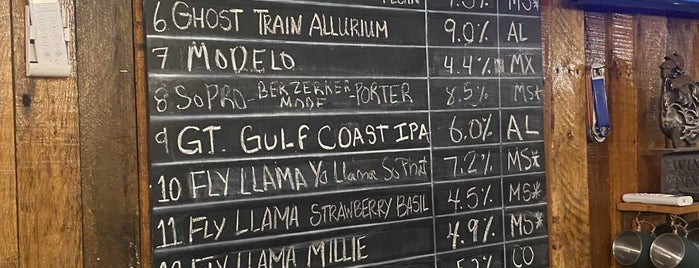 6 GHOST TRAIN ALLURIUM 9.0% AL
7 MODELO 4.4% MX
8 SOPRO-BERZERKER MODE-PORTER 8.5% MS*
9 GT. GULF COAST IPA 6.0% AL
10 FLY LLAMA Yo Llama So Phat 7.2% MS*
11 FLY LLAMA STRAWBERRY BASIL 4.5% MS*
FLY LLAMA MILLIE 4.9% MS*
CO